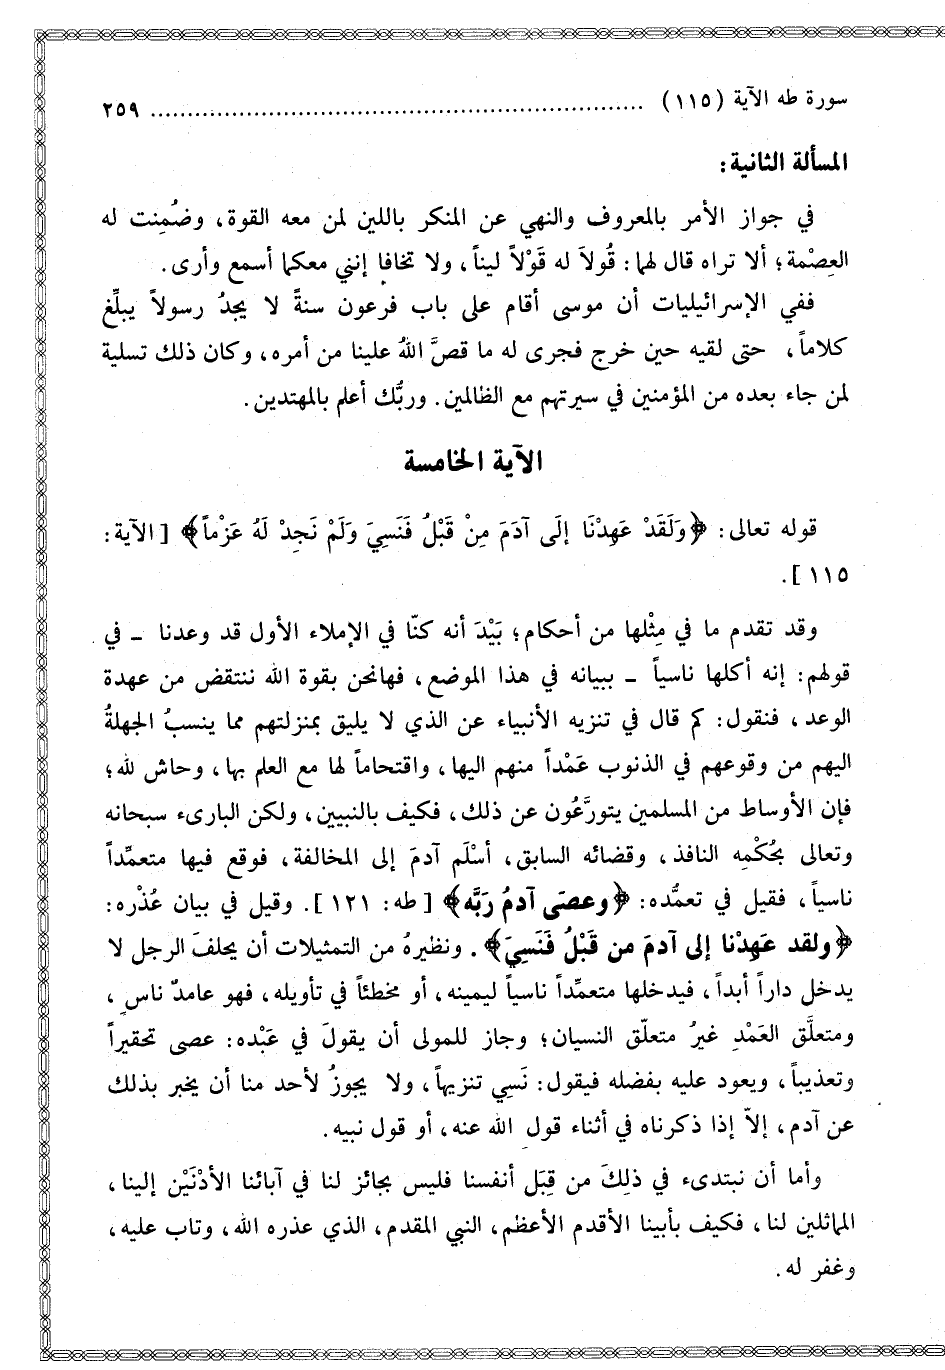 سورة طه الآية (١١٥) ................................................................ ٢٥٩
المسألة الثانية:
في جواز الأمر بالمعروف والنهي عن المنكر باللين لمن معه القوة، وضُمِنت له
العِصْمة؛ ألا تراه قال لهما: قُولاَ له قَوْلاً ليناً، ولا تخافا إنني معكما أسمع وأرى.
ففي الإسرائيليات أن موسى أقام على باب فرعون سنةً لا يجدُ رسولاً يبلِّغ
كلاماً، حتى لقيه حين خرج فجرى له ما قصَّ اللهُ علينا من أمره، وكان ذلك تسلية
لمن جاء بعده من المؤمنين في سيرتهم مع الظالمين. وربُّك أعلم بالمهتدين.
الآية الخامسة
قوله تعالى: ﴿وَلَقَدْ عَهِدْنَا إلَى آدَمَ مِنْ قَبْلُ فَنَسِيَ وَلَمْ نَجِدْ لَهُ عَزْماً﴾ [الآية:
١١٥].
وقد تقدم ما في مِثْلها من أحكام؛ بَيْدَ أنه كنّا في الإملاء الأول قد وعدنا ـ في
قولهم: إنه أكلها ناسياً ـ ببيانه في هذا الموضع، فهانحن بقوة الله ننتقض من عهدة
الوعد، فنقول: كم قال في تنزيه الأنبياء عن الذي لا يليق بمنزلتهم مما ينسبُ الجهلةُ
اليهم من وقوعهم في الذنوب عَمْداً منهم اليها، واقتحاماً لها مع العلم بها، وحاش لله؛
فإن الأوساط من المسلمين يتورَّعُون عن ذلك، فكيف بالنبيين، ولكن البارىء سبحانه
وتعالى بحُكْمِه النافذ، وقضائه السابق، أسْلَم آدمَ إلى المخالفة، فوقع فيها متعمِّداً
ناسياً، فقيل في تعمُّده: ﴿وعصَى آدمُ رَبَّه﴾ [طه: ١٢١]. وقيل في بيان عُذْره:
﴿ولقد عَهِدْنا إلى آدمَ من قَبْلُ فَنَسِيَ﴾. ونظيرهُ من التمثيلات أن يحلفَ الرجل لا
يدخل داراً أبداً، فيدخلها متعمِّداً ناسياً ليمينه، أو مخطئاً في تأويله، فهو عامدٌ ناسٍ،
ومتعلَّق العَمْدِ غيرُ متعلّق النسيان؛ وجاز للمولى أن يقولَ في عَبْده: عصى تحقيراً
وتعذيباً، ويعود عليه بفضله فيقول: نَسِي تنزيهاً، ولا يجوزُ لأحد منا أن يخبر بذلك
عن آدم، إلاّ إذا ذكرناه في أثناء قول الله عنه، أو قول نبيه.
وأما أن نبتدىء في ذلِكَ من قِبَل أنفسنا فليس بجائز لنا في آبائنا الأدْنَيْن إلينا،
المماثلين لنا، فكيف بأبينا الأقدم الأعظم، النبي المقدم، الذي عذره الله، وتاب عليه،
وغفر له.